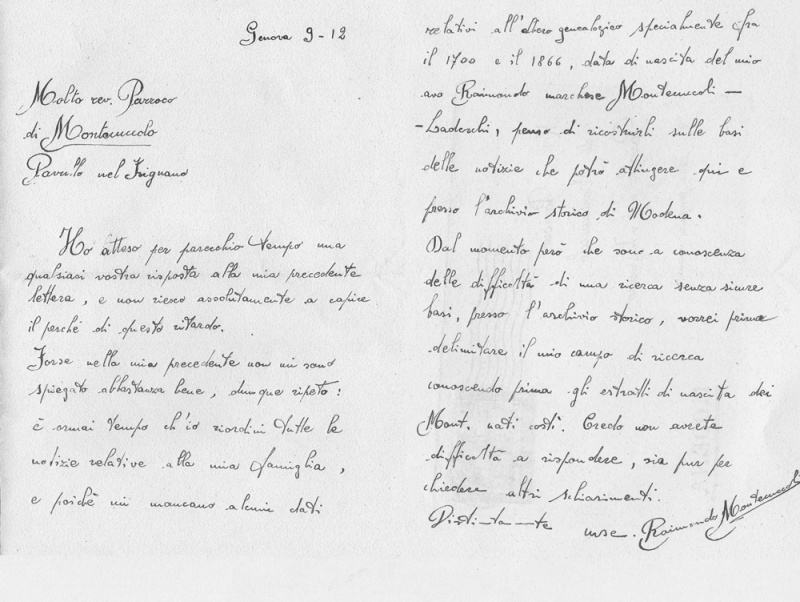 Genova 9-12
Molto rev. Parroco
di Montecuccolo
Pavullo nel Frignano
Ho atteso per parecchio tempo una
qualsiasi vostra risposta alla mia precedente
lettera, e non riesco assolutamente a capire
il perché di questo ritardo.
Forse nella mia precedente non mi sono
spiegato abbastanza bene, dunque ripeto:
è ormai tempo ch'io riordini tutte le
notizie relative alla mia famiglia,
e poichè mi mancano alcuni dati
relativi all'albero genealogico specialmente fra
il 1700 e il 1866, data di nascita del mio
avo Raimondo marchese Montecuccoli -
- Laderchi, penso di ricostruirli sulle basi
delle notizie che potrò attingere qui e
presso l'archivio storico di Modena.
Dal momento però che sono a conoscenza
delle difficoltà di una ricerca senza sicure
basi, presso l'archivio storico, vorrei prima
delimitare il mio campo di ricerca
conoscendo prima gli estratti di nascita dei
Mont. nati costì. Credo non avrete
difficoltà a rispondere, sia pur per
chiedere altri schiarimenti.
Raimondo Montecuccoli